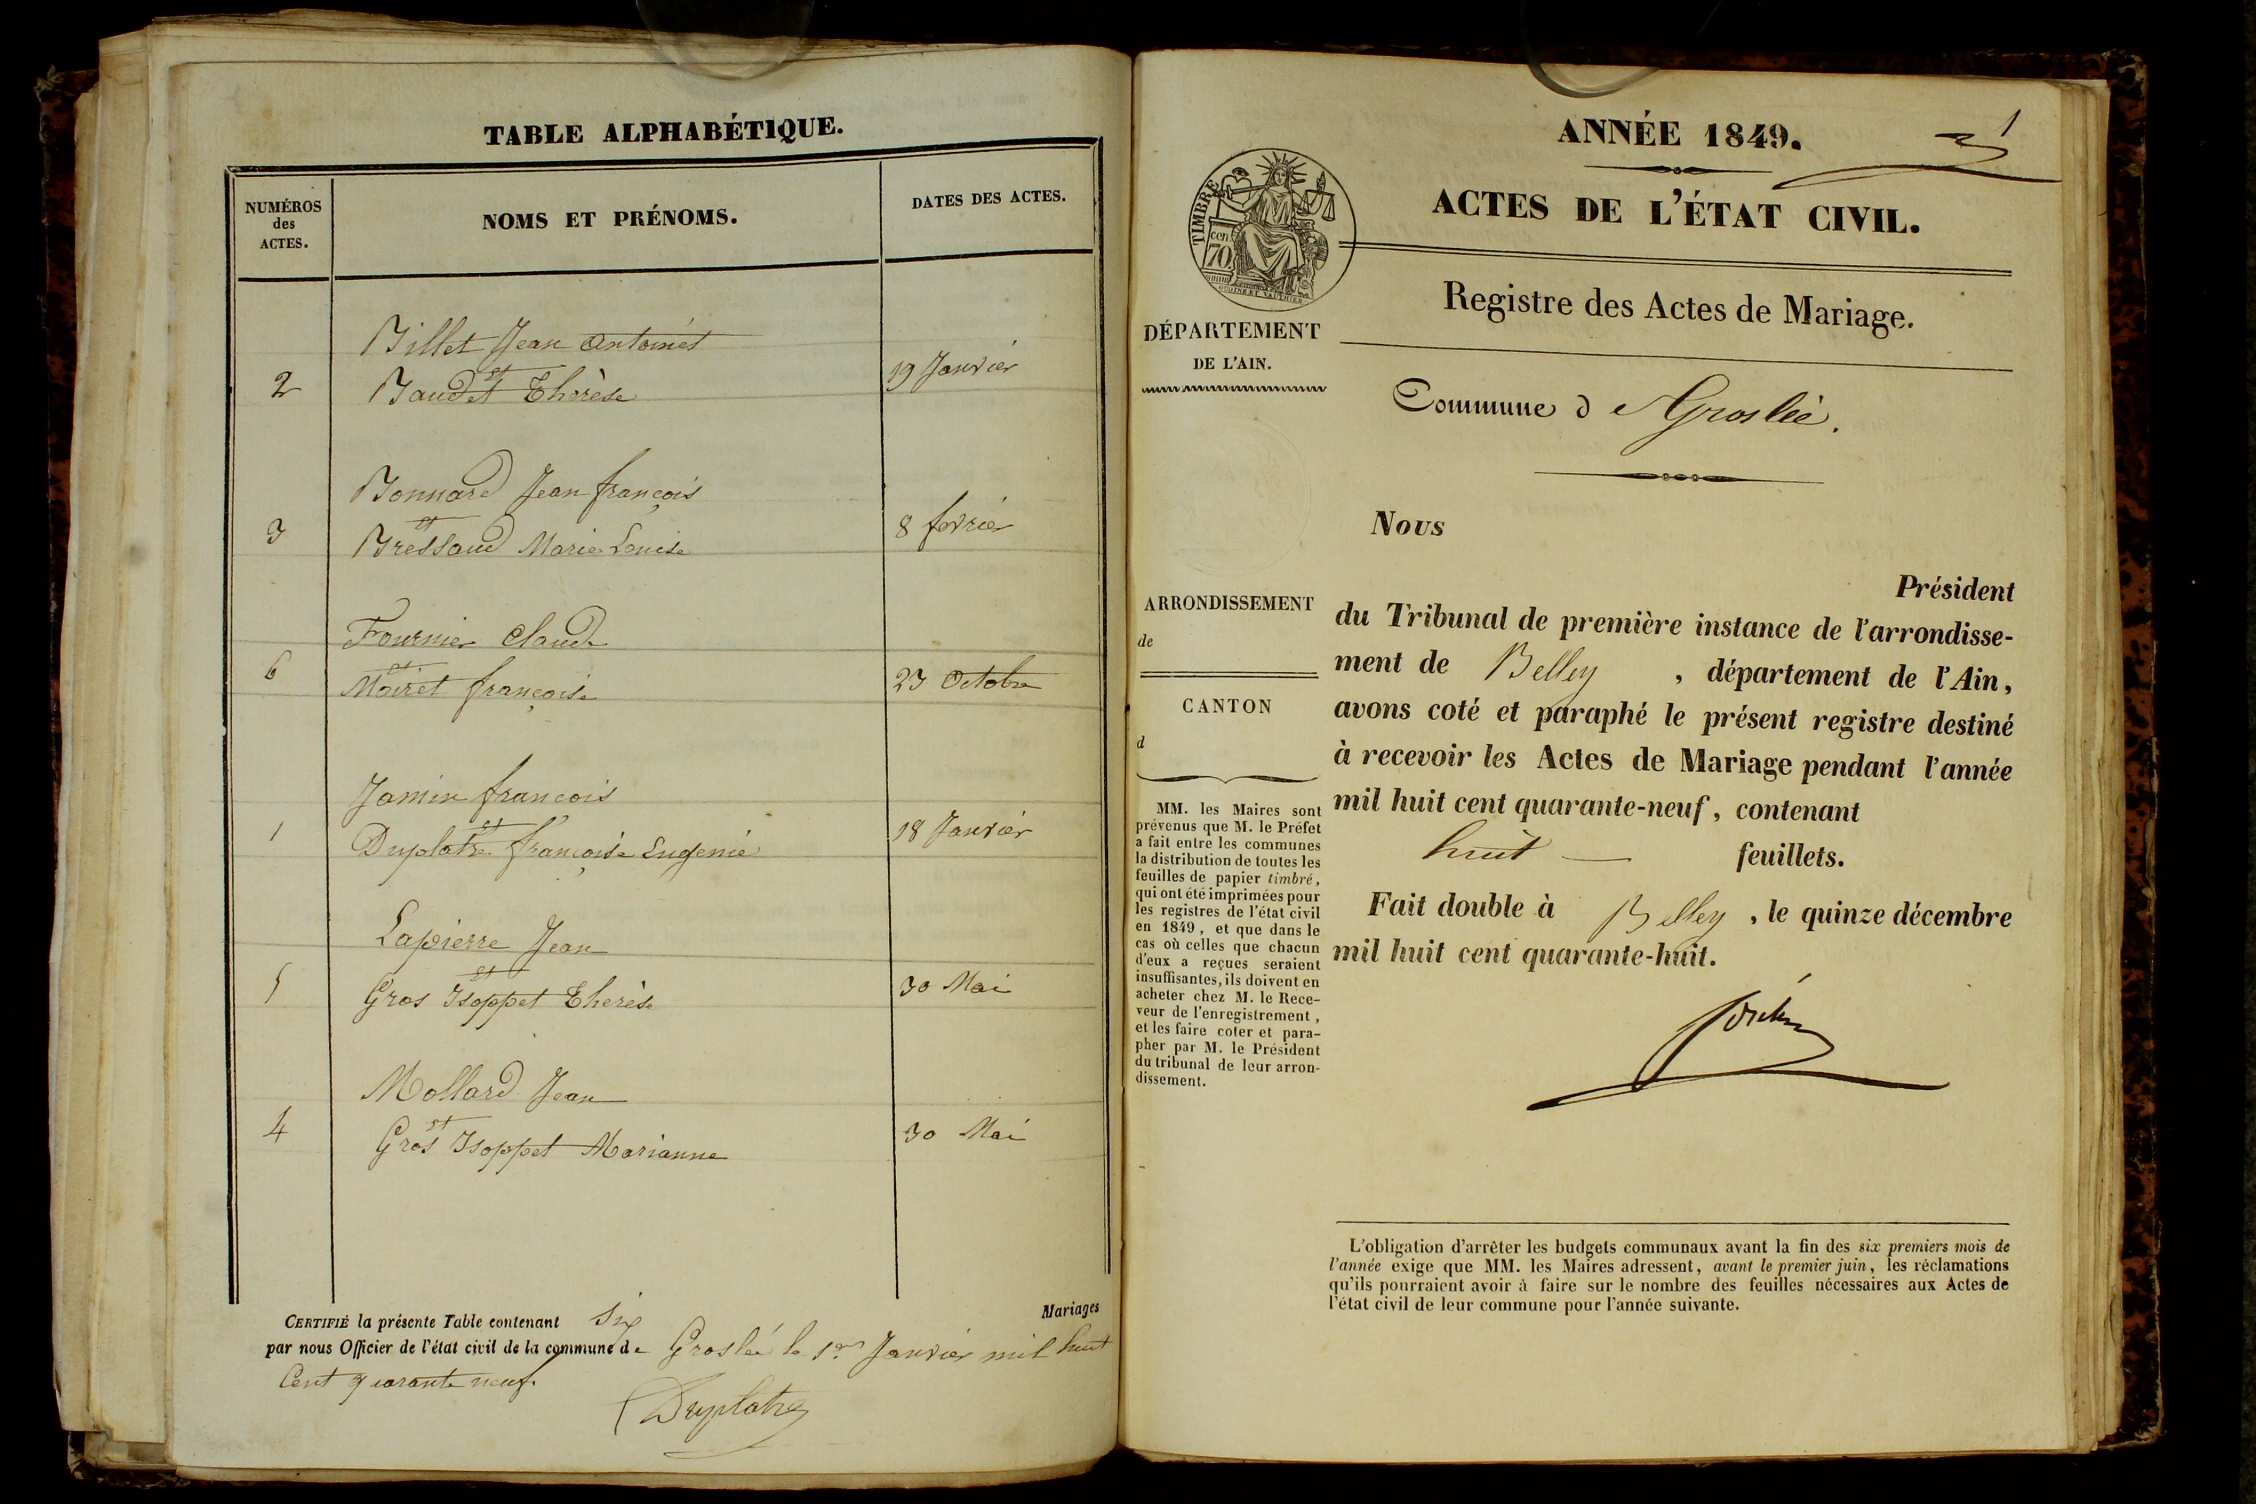 TABLE ALPHABÉTIQUE.
NUMÉROS
des
ACTES.
NOMS ET PRÉNOMS.
DATES DES ACTES.
Billet Jean Antoine
et
2 Baudet Therèse 19 Janvier
Bonnard Jean françois
et
3 Bressaud Marie Louise 8 fevrier
Fournier Claude
et
6 Moiret françoise 23 Octobre
Jamin francois
et
1 Duplatre françoise Eugenie 18 Janvier
Lapierre Jean
et
5 Gros Isoppet Therèse 30 Mai
Mollard Jean
et
4 Gros Isoppet Marianne 30 Mai
CERTIFIÉ la présente Table contenant six Mariages
par nous Officier de l'état civil de la commune de Groslée le 1er Janvier mil huit
Cent quarante neuf.
Duplatre
ANNÉE 1849.
1
ACTES DE L'ÉTAT CIVIL.
TIMBRE
cen.
70
Registre des Actes de Mariage.
DÉPARTEMENT
DE L'AIN.
Commune d e Groslée.
ARRONDISSEMENT
de
CANTON
d
MM. les Maires sont
prévenus que M. le Préfet
a fait entre les communes
la distribution de toutes les
feuilles de papier timbré,
qui ont été imprimées pour
les registres de l'état civil
en 1849, et que dans le
cas où celles que chacun
d'eux a reçues seraient
insuffisantes, ils doivent en
acheter chez M. le Rece-
veur de l'enregistrement,
et les faire coter et para-
pher par M. le Président
du tribunal de leur arron-
dissement.
Nous
Président
du Tribunal de première instance de l'arrondisse-
ment de Belley, département de l'Ain,
avons coté et paraphé le présent registre destiné
à recevoir les Actes de Mariage pendant l'année
mil huit cent quarante-neuf, contenant
huit feuillets.
Fait double à Belley, le quinze décembre
mil huit cent quarante-huit.
L'obligation d'arrêter les budgets communaux avant la fin des six premiers mois de
l'année exige que MM. les Maires adressent, avant le premier juin, les réclamations
qu'ils pourraient avoir à faire sur le nombre des feuilles nécessaires aux Actes de
l'état civil de leur commune pour l'année suivante.